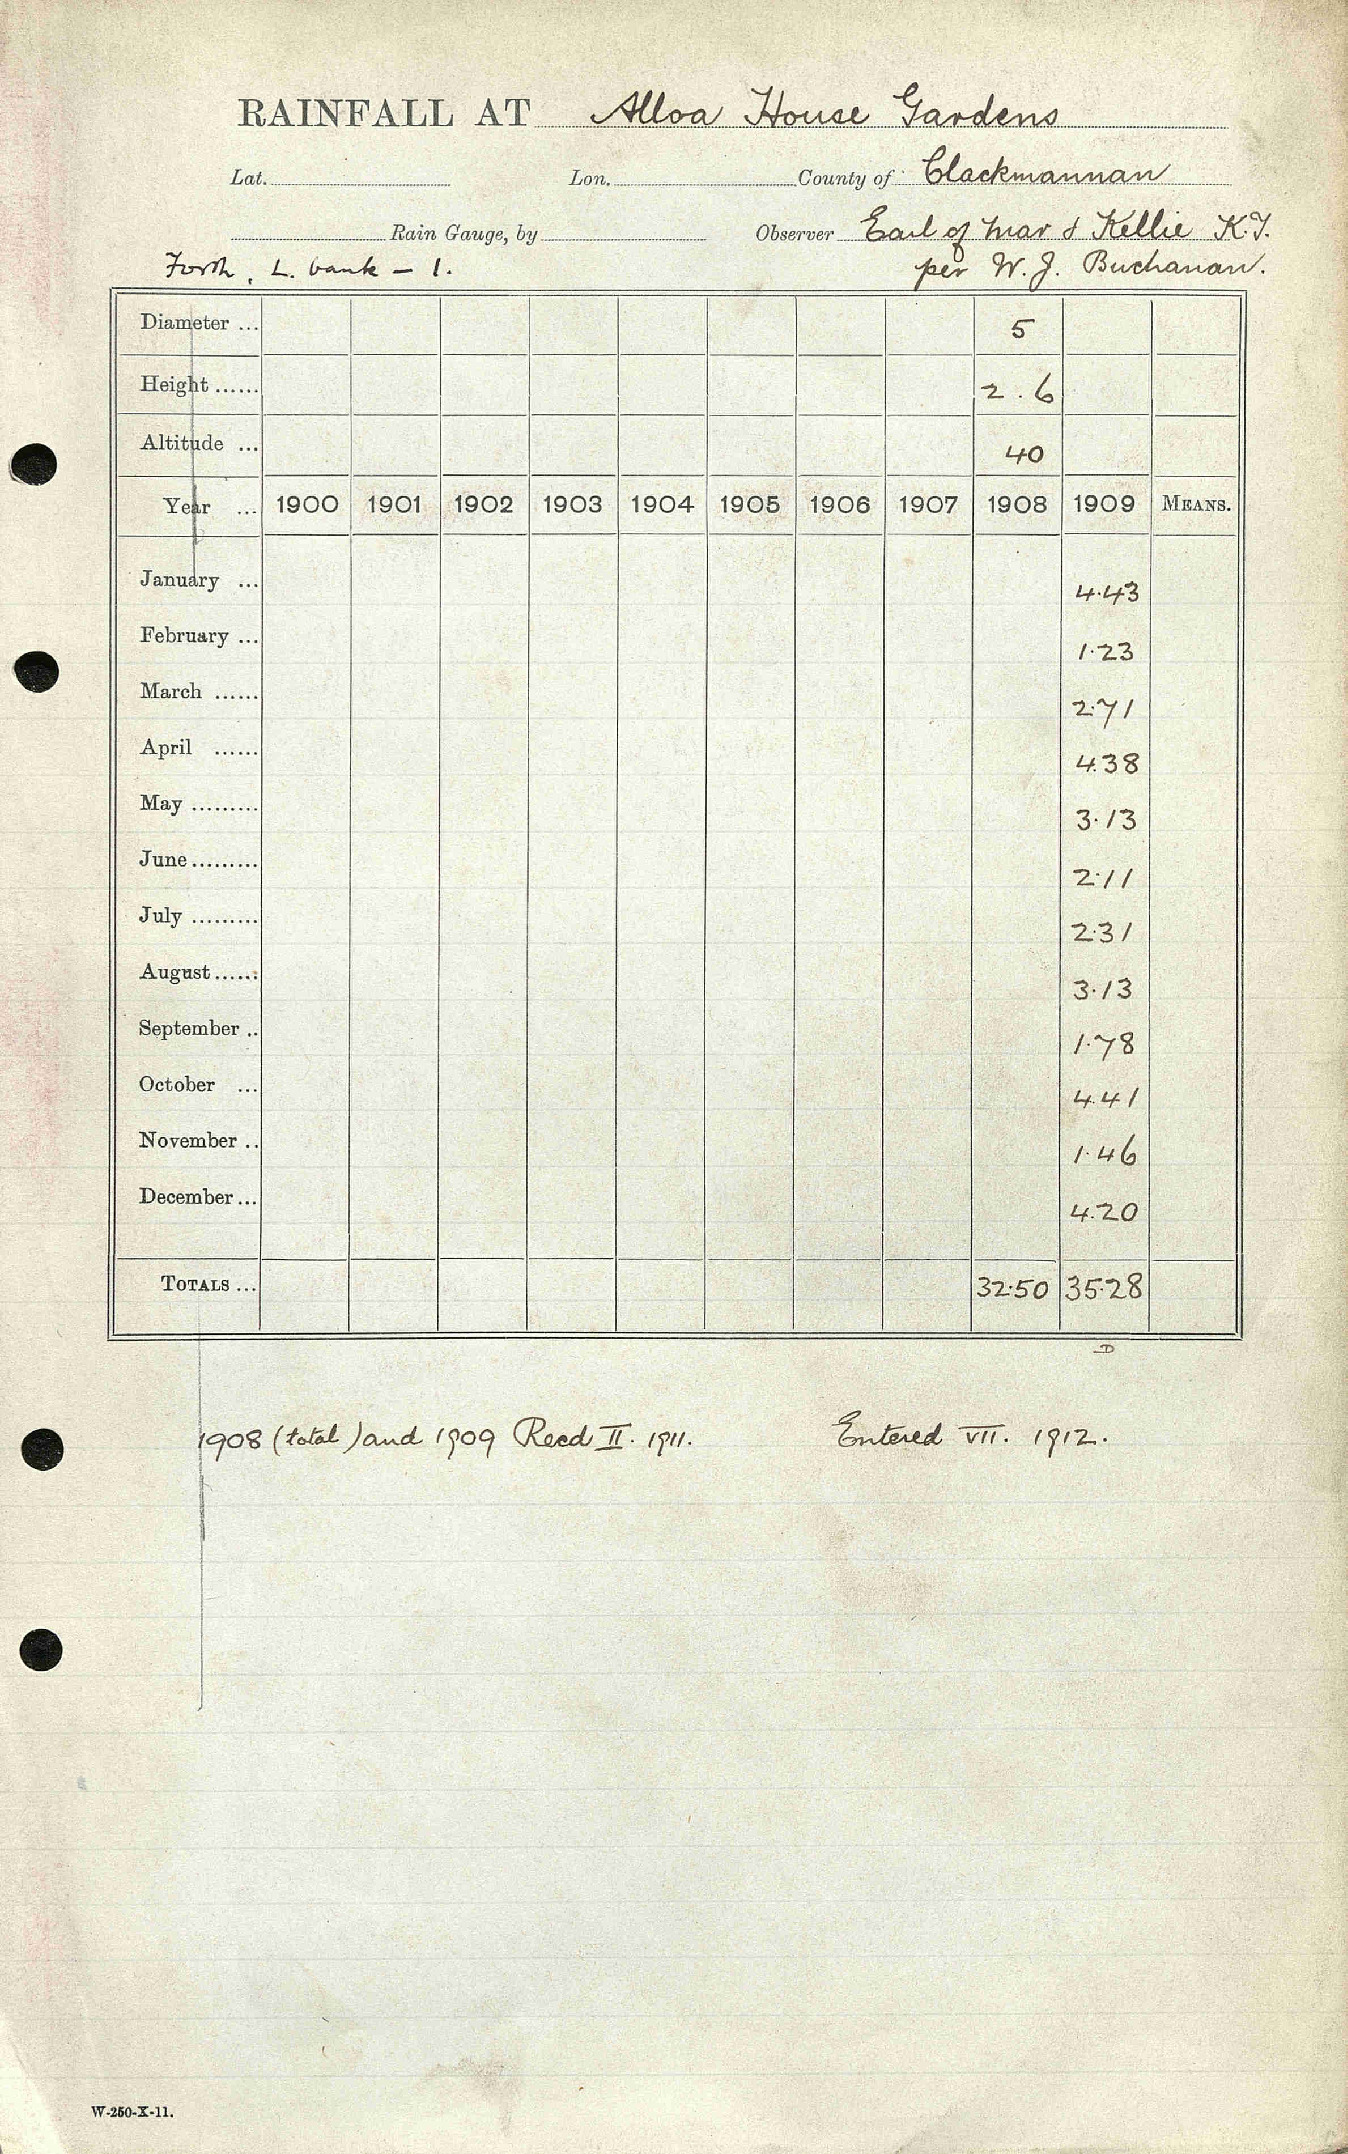 RAINFALL AT Alloa House Gardens
Lat. Lon. County of Clackmannan
Rain Gauge, by Observer Earl of Mar & Kellie K.T.
Forth, L. bank – 1. per W. J. Buchanan.
Diameter ... 5
Height ...... 2 . 6
Altitude ... 40
Year ... 1900 1901 1902 1903 1904 1905 1906 1907 1908 1909 MEANS.
January ... 4.43
February ... 1.23
March ...... 2.71
April ...... 4.38
May ......... 3.13
June ......... 2.11
July ......... 2.31
August ...... 3.13
September .. 1.78
October ... 4.41
November .. 1.46
December ... 4.20
TOTALS ... 32.50 35.28
D
1908 (total) and 1909 Recd II. 1911. Entered VII. 1912.
W-250-X-11.